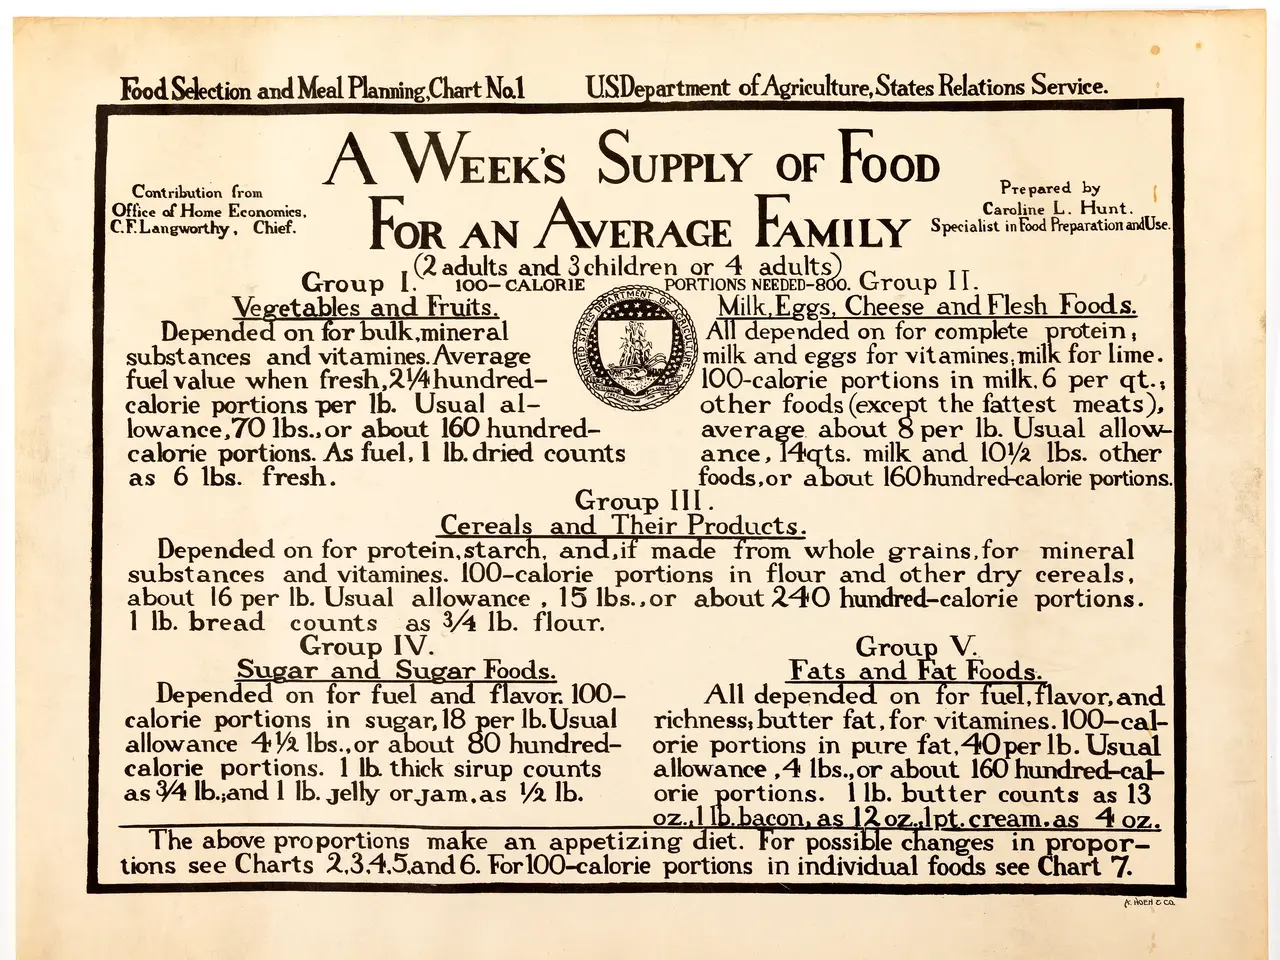 Food Selection and Meal Planning, Chart No.1 U.S. Department of Agriculture, States Relations Service.
A WEEK'S SUPPLY OF FOOD
FOR AN AVERAGE FAMILY
(2 adults and 3 children or 4 adults)
100-CALORIE PORTIONS NEEDED-800.
Contribution from
Office of Home Economics,
C.F. Langworthy, Chief.
Prepared by
Caroline L. Hunt.
Specialist in Food Preparation and Use.
Group I.
Vegetables and Fruits.
Depended on for bulk, mineral
substances and vitamines. Average
fuel value when fresh, 2¼ hundred-
calorie portions per lb. Usual al-
lowance, 70 lbs., or about 160 hundred-
calorie portions. As fuel, 1 lb. dried counts
as 6 lbs. fresh.
UNITED STATES DEPARTMENT OF AGRICULTURE
Group II.
Milk, Eggs, Cheese and Flesh Foods.
All depended on for complete protein;
milk and eggs for vitamines; milk for lime.
100-calorie portions in milk, 6 per qt.;
other foods (except the fattest meats),
average about 8 per lb. Usual allow-
ance, 14 qts. milk and 10½ lbs. other
foods, or about 160 hundred-calorie portions.
Group III.
Cereals and Their Products.
Depended on for protein, starch, and, if made from whole grains, for mineral
substances and vitamines. 100-calorie portions in flour and other dry cereals,
about 16 per lb. Usual allowance, 15 lbs., or about 240 hundred-calorie portions.
1 lb. bread counts as ¾ lb. flour.
Group IV.
Sugar and Sugar Foods.
Depended on for fuel and flavor. 100-
calorie portions in sugar, 18 per lb. Usual
allowance 4½ lbs., or about 80 hundred-
calorie portions. 1 lb. thick sirup counts
as ¾ lb.; and 1 lb. jelly or jam, as ½ lb.
Group V.
Fats and Fat Foods.
All depended on for fuel, flavor, and
richness; butter fat, for vitamines. 100-cal-
orie portions in pure fat, 40 per lb. Usual
allowance, 4 lbs., or about 160 hundred-cal-
orie portions. 1 lb. butter counts as 13
oz., 1 lb. bacon, as 12 oz., 1 pt. cream, as 4 oz.
The above proportions make an appetizing diet. For possible changes in propor-
tions see Charts 2, 3, 4, 5, and 6. For 100-calorie portions in individual foods see Chart 7.
A. HOEN & CO.